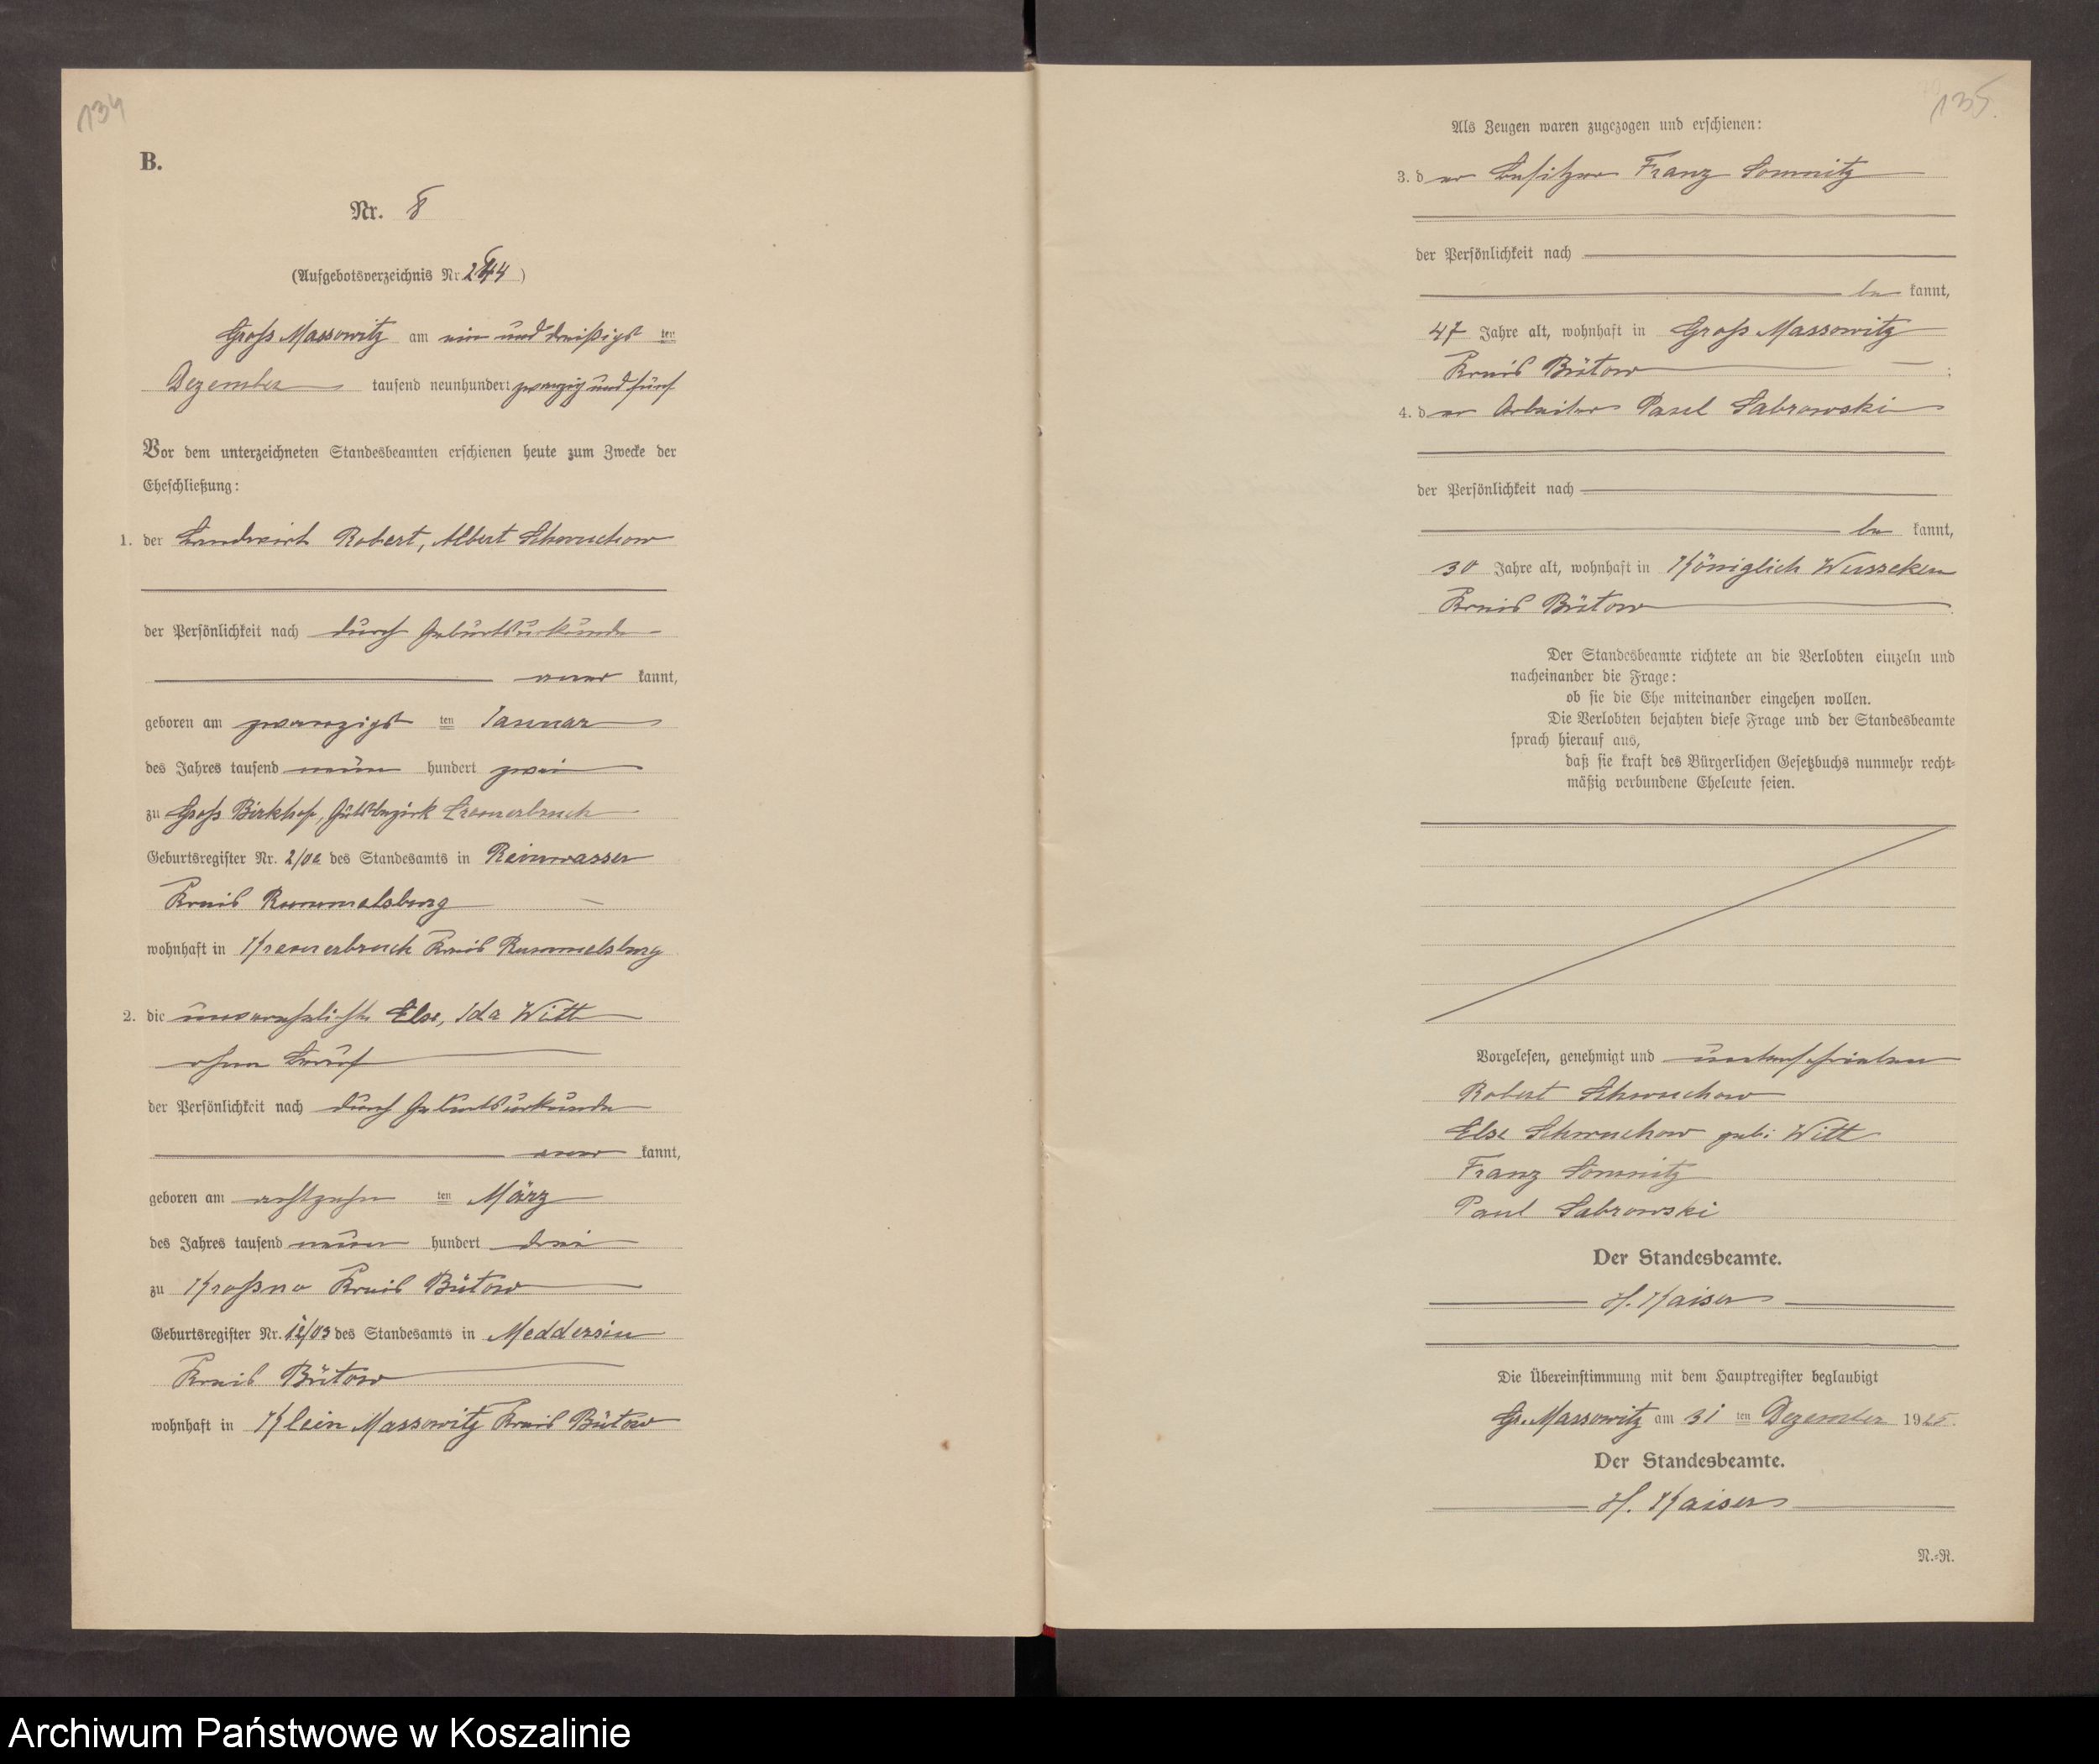 134
B.
Nr. 8
(Aufgebotsverzeichnis Nr. )
Groß Massowitz am ein und dreißigst ten
Dezember tausend neunhundert zwanzig und fünf
Vor dem unterzeichneten Standesbeamten erschienen heute zum Zwecke der
Eheschließung:
1. der Landwirt Robert, Albert Schwuchow
der Persönlichkeit nach durch Geburtsurkunde
aner kannt,
geboren am zwanzigst ten Januar
des Jahres tausend neun hundert zwei
zu Groß Birkhof, Gutsbezirk
Geburtsregister Nr. 2/02 des Standesamts in Reinwasser
Kreis Rummelsburg
wohnhaft in Kremerbruch Kreis Rummelsburg
2. die unverehelichte Else, Ida Witt
ohne Beruf
der Persönlichkeit nach durch Geburtsurkunde
aner kannt,
geboren am achtzehn ten März
des Jahres tausend neun hundert drei
zu Kroßno Kreis Bütow
Geburtsregister Nr. 12/03 des Standesamts in Meddersin
Kreis Bütow
wohnhaft in Klein Massowitz Kreis Bütow
135.
Als Zeugen waren zugezogen und erschienen:
3. d er Besitzer Franz Somnitz
der Persönlichkeit nach
be kannt,
47 Jahre alt, wohnhaft in Groß Massowitz
Kreis Bütow ;
4. d er Arbeiter Paul Sabrowski
der Persönlichkeit nach
be kannt,
30 Jahre alt, wohnhaft in Königlich Wusseken
Kreis Bütow .
Der Standesbeamte richtete an die Verlobten einzeln und
nacheinander die Frage:
ob sie die Ehe miteinander eingehen wollen.
Die Verlobten bejahten diese Frage und der Standesbeamte
sprach hierauf aus,
daß sie kraft des Bürgerlichen Gesetzbuchs nunmehr recht-
mäßig verbundene Eheleute seien.
Vorgelesen, genehmigt und unterschrieben
Robert Schwuchow
Else Schwuchow geb: Witt
Franz Somnitz
Paul Sabrowski
Der Standesbeamte.
H. Kaiser
Die Übereinstimmung mit dem Hauptregister beglaubigt
Gr. Massowitz am 31 ten Dezember 1925.
Der Standesbeamte.
H. Kaiser
N.-R.
Archiwum Państwowe w Koszalinie